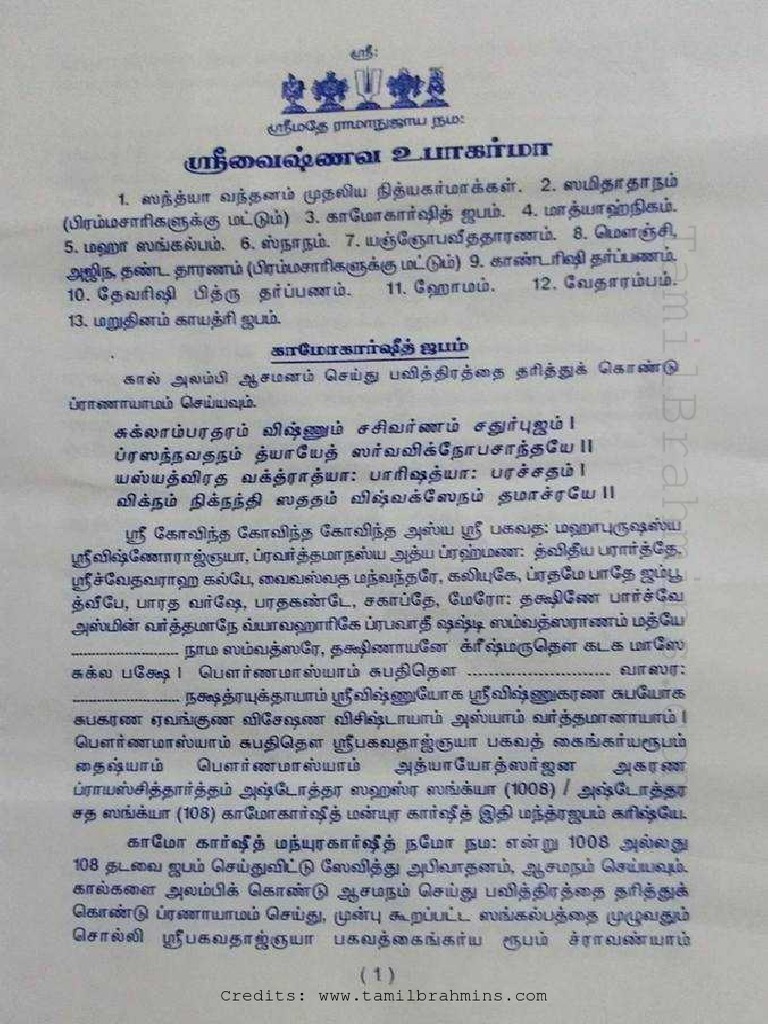 ஸ்ரீ:
ஸ்ரீமதே ராமாநுஜாய நம:
ஸ்ரீவைஷ்ணவ உபாகர்மா
1. ஸந்த்யா வந்தனம் முதலிய நித்யகர்மாக்கள். 2. ஸமிதாதாநம்
(பிரம்மசாரிகளுக்கு மட்டும்) 3. காமோகார்ஷித் ஜபம். 4. மாத்யாஹ்நிகம்.
5. மஹா ஸங்கல்பம். 6. ஸ்நாநம். 7. யஞ்ஞோபவீததாரணம். 8. மௌஞ்சி,
அஜிந, தண்ட தாரணம் (பிரம்மசாரிகளுக்கு மட்டும்) 9. காண்டரிஷி தர்ப்பணம்.
10. தேவரிஷி பித்ரு தர்ப்பணம். 11. ஹோமம். 12. வேதாரம்பம்.
13. மறுதினம் காயத்ரி ஜபம்.
காமோகார்ஷீத் ஜபம்
கால் அலம்பி ஆசமனம் செய்து பவித்திரத்தை தரித்துக் கொண்டு
ப்ராணாயாமம் செய்யவும்.
சுக்லாம்பரதரம் விஷ்ணும் சசிவர்ணம் சதுர்புஜம் |
ப்ரஸந்நவதநம் த்யாயேத் ஸர்வவிக்நோபசாந்தயே ||
யஸ்யத்விரத வக்த்ராத்யா: பாரிஷத்யா: பரச்சதம் |
விக்நம் நிக்நந்தி ஸததம் விஷ்வக்ஸேநம் தமாச்ரயே ||
ஸ்ரீ கோவிந்த கோவிந்த கோவிந்த அஸ்ய ஸ்ரீ பகவத: மஹாபுருஷஸ்ய
ஸ்ரீவிஷ்ணோராஜ்ஞயா, ப்ரவர்த்தமாநஸ்ய அத்ய ப்ரஹ்மண: த்விதீய பரார்த்தே,
ஸ்ரீச்வேதவராஹ கல்பே, வைவஸ்வத மந்வந்தரே, கலியுகே, ப்ரதமே பாதே ஜம்பூ
த்வீபே, பாரத வர்ஷே, பரதகண்டே, சகாப்தே, மேரோ: தக்ஷிணே பார்ச்வே
அஸ்மின் வர்த்தமாநே வ்யாவஹாரிகே ப்ரபவாதீ ஷஷ்டி ஸம்வத்ஸராணாம் மத்யே
........................... நாம ஸம்வத்ஸரே, தக்ஷிணாயனே க்ரீஷ்மருதௌ கடக மாஸே
சுக்ல பக்ஷே | பௌர்ணமாஸ்யாம் சுபதிதௌ ............................ வாஸர:
........................... நக்ஷத்ரயுக்தாயாம் ஸ்ரீவிஷ்ணுயோக ஸ்ரீவிஷ்ணுகரண சுபயோக
சுபகரண ஏவங்குண விசேஷண விசிஷ்டாயாம் அஸ்யாம் வர்த்தமானாயாம் |
பௌர்ணமாஸ்யாம் சுபதிதௌ ஸ்ரீபகவதாஜ்ஞயா பகவத் கைங்கர்யரூபம்
தைஷ்யாம் பௌர்ணமாஸ்யாம் அத்யாயோத்ஸர்ஜன அகரண
ப்ராயஸ்சித்தார்த்தம் அஷ்டோத்தர ஸஹஸ்ர ஸங்க்யா (1008) / அஷ்டோத்தர
சத ஸங்க்யா (108) காமோகார்ஷீத் மன்யுர கார்ஷீத் இதி மந்த்ரஜபம் கரிஷ்யே.
காமோ கார்ஷீத் மந்யுரகார்ஷீத் நமோ நம: என்று 1008 அல்லது
108 தடவை ஜபம் செய்துவிட்டு ஸேவித்து அபிவாதனம், ஆசமநம் செய்யவும்.
கால்களை அலம்பிக் கொண்டு ஆசமநம் செய்து பவித்திரத்தை தரித்துக்
கொண்டு ப்ரணாயாமம் செய்து, முன்பு கூறப்பட்ட ஸங்கல்பத்தை முழுவதும்
சொல்லி ஸ்ரீபகவதாஜ்ஞயா பகவத்கைங்கர்ய ரூபம் ச்ராவண்யாம்
(1)
Credits: www.tamilbrahmins.com